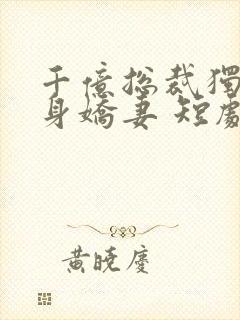 千億总裁獨
身嬌妻 短劇
黃曉慶